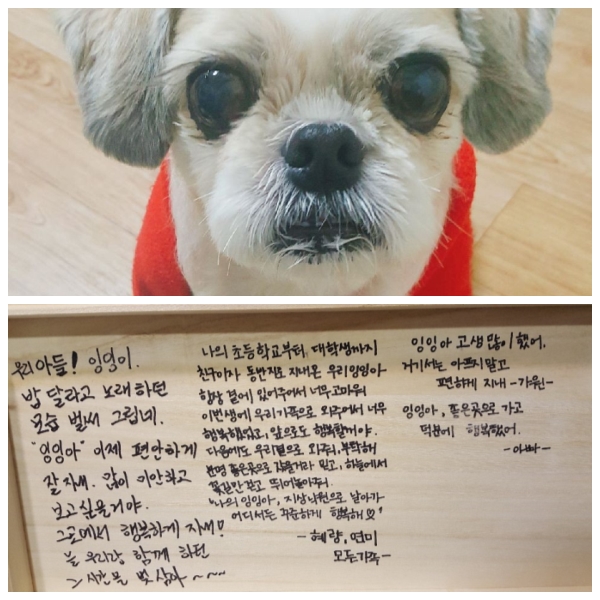 우리 아들! 잉잉이.
밥 달라고 노래 하던
모습 벌써 그립네.
"잉잉아" 이제 편안하게
잘 자새. 많이 미안하고
보고싶을거야.
그곳에서 행복하게 지내!
늘 우리랑 함께 하던
시간을 벗 삼아 ~~~
나의 초등학교부터 대학생까지
친구이자 동반자로 지내온 우리잉잉아
항상 곁에 있어주어서 너무고마워
이번생에 우리가족으로 와주어서 너무
행복하였고, 앞으로도 행복할꺼야.
다음에도 우리곁으로 와주니, 부탁해
분명 좋은곳으로 갔을거라 믿고, 하늘에서
꽃길만 걷고 뛰어놀아줘.
"나의 잉잉아, 지상낙원으로 날아가
어디서든 꾸준하게 행복해♡"
- 혜량, 연미
모든가족 -
잉잉아 고생 많이 했어.
거기서는 아프지말고
편하게 지내 -가원-
잉잉아, 좋은곳으로 가고
덕분에 행복했어.
-아빠-